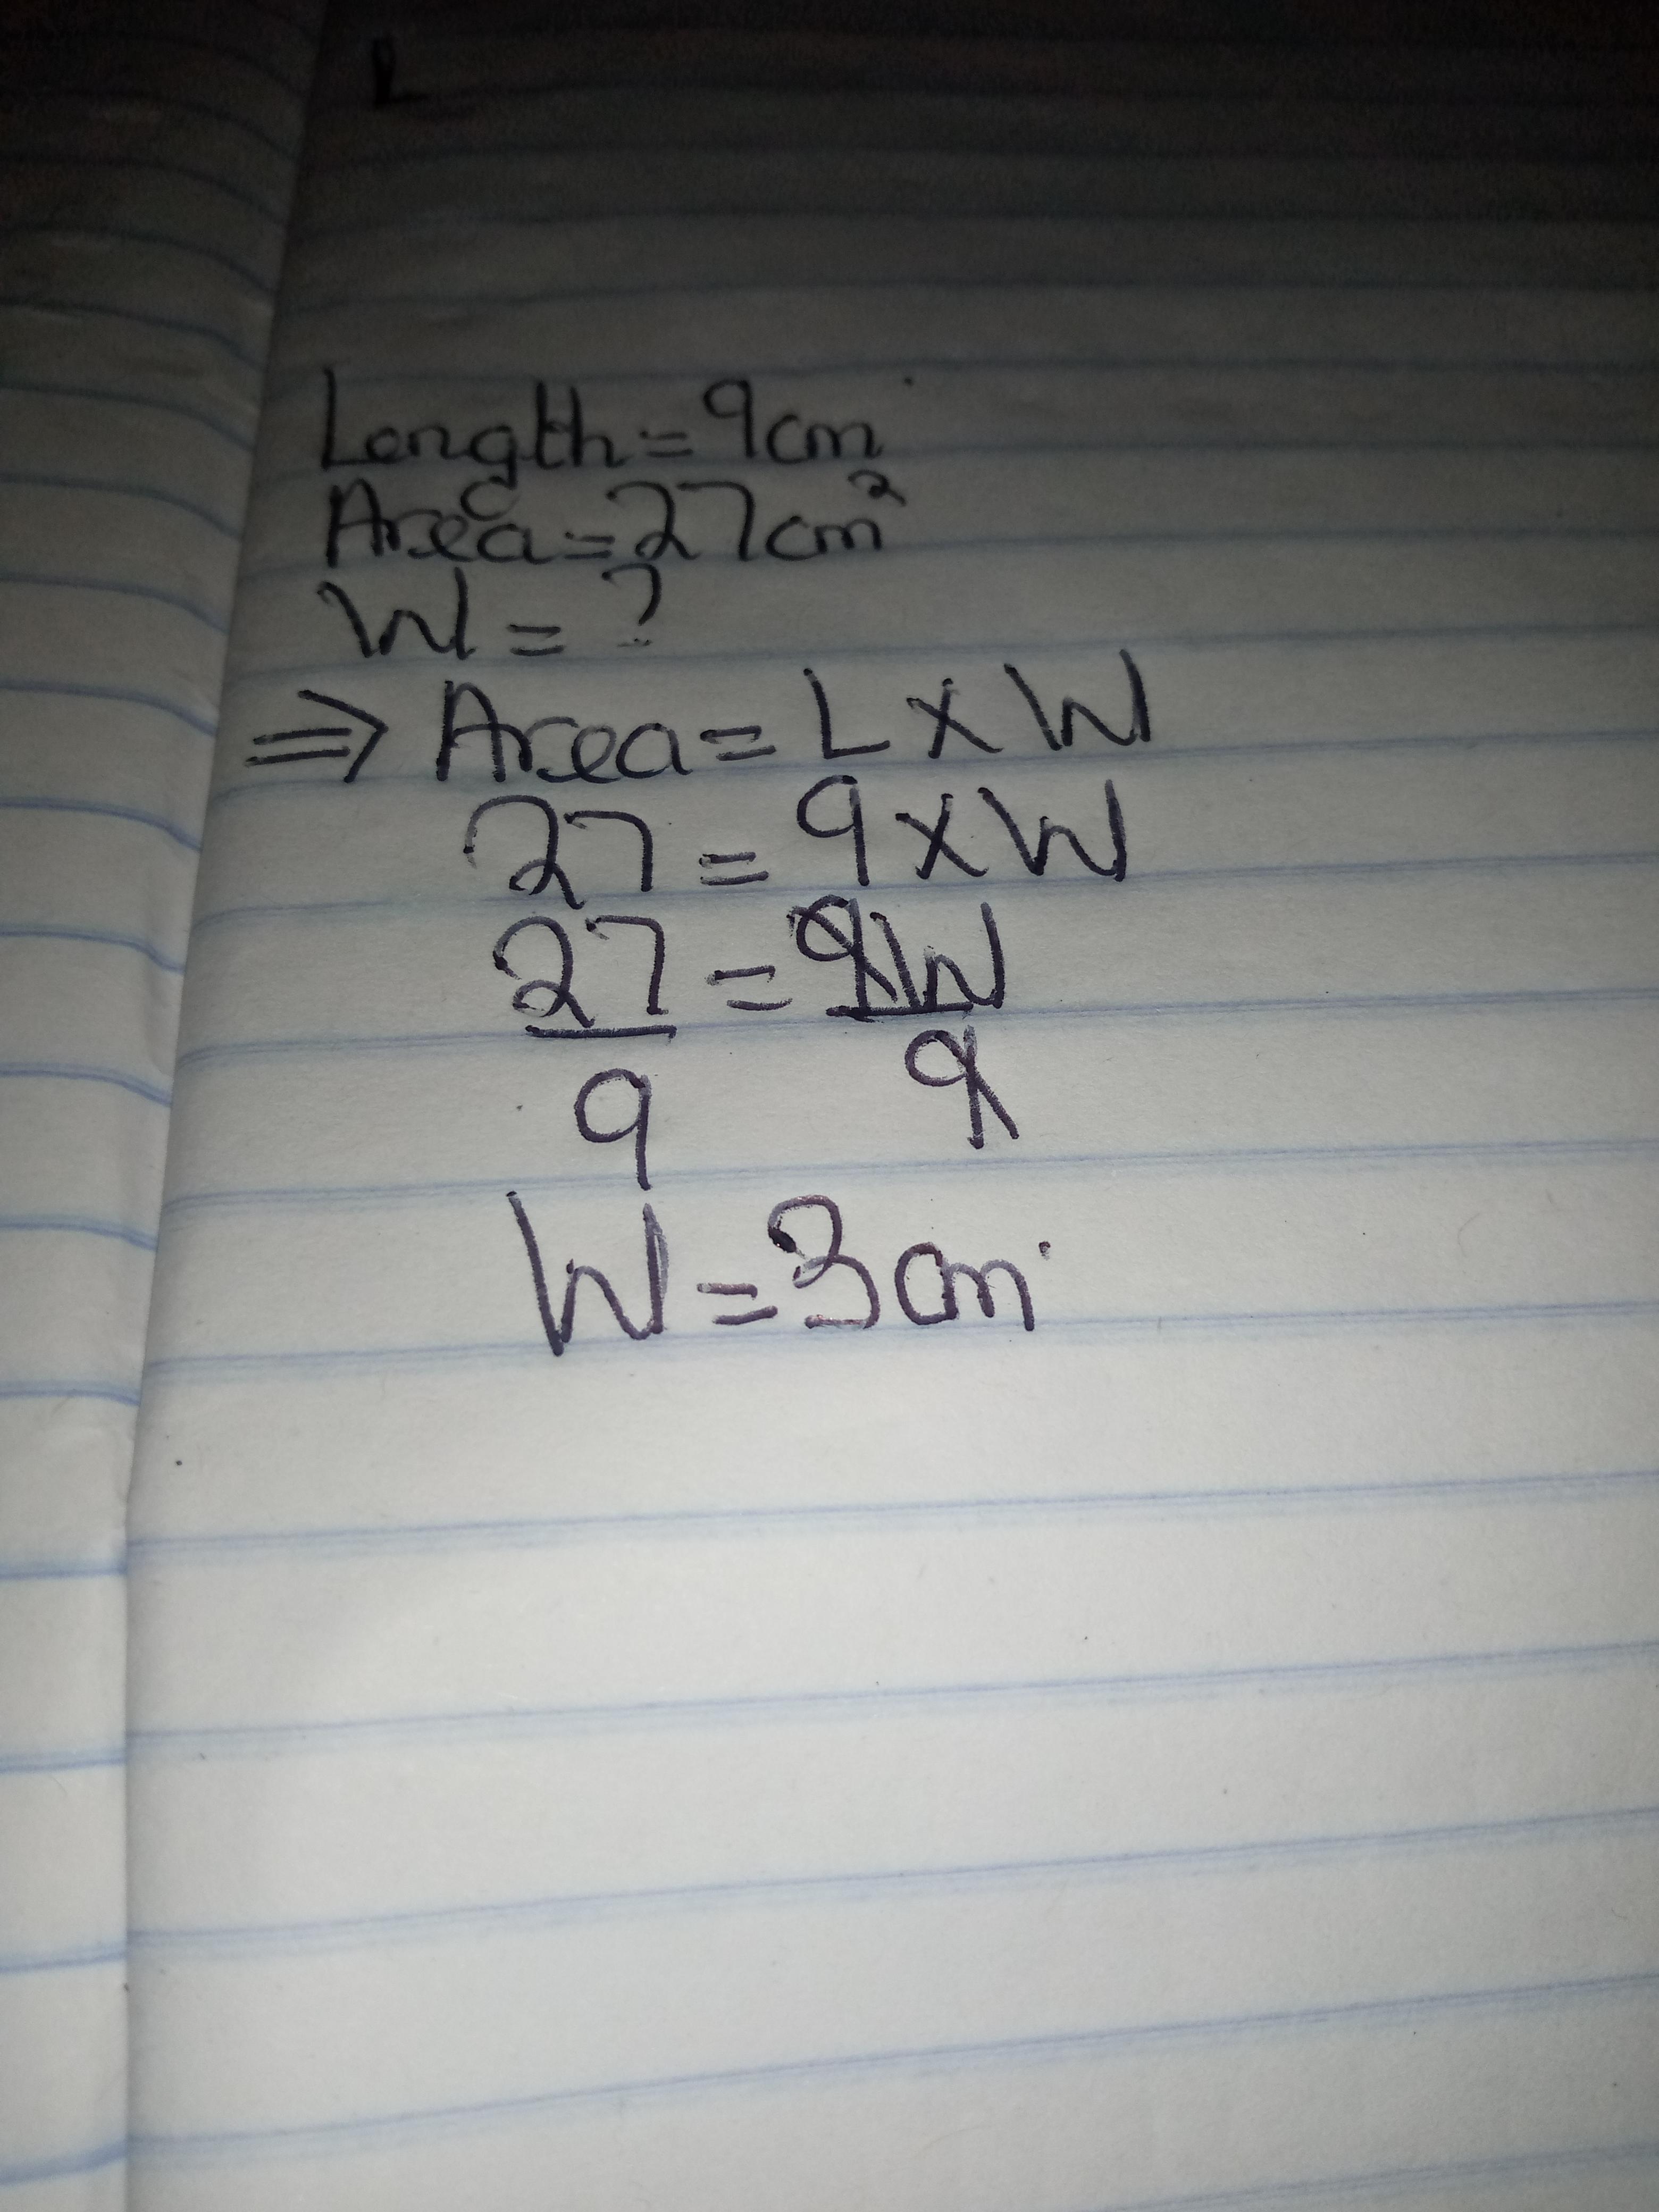 L
Length = 9cm
Area = 27cm²
W = ?
⇒ Area = L x W
27 = 9 x W
27 = 9W
9 9
W = 3cm